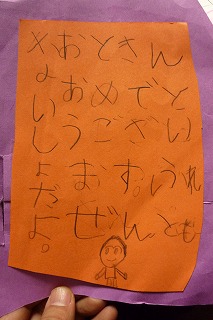 おとさん
おめでと
うござい
ます。うれ
ぜんとも
よいしよだよ。